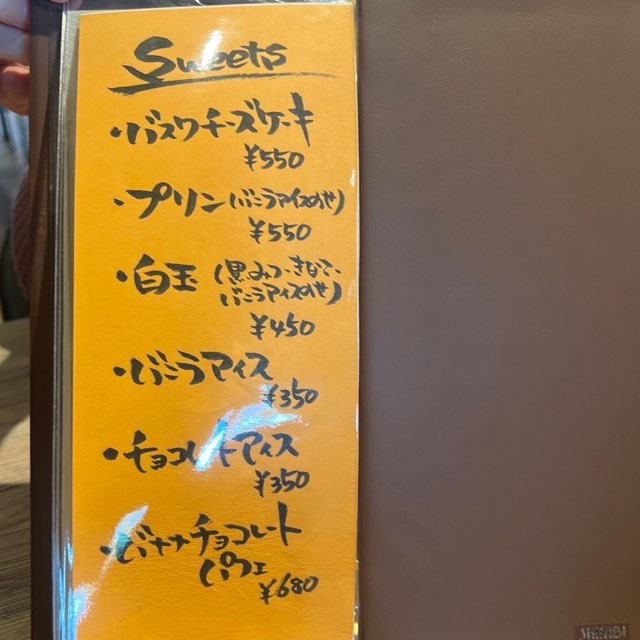 Sweets
・バスクチーズケーキ
¥550
・プリン(バニラアイスのせ)
¥550
・白玉(黒みつ・きなこ・
バニラアイスのせ)
¥450
・バニラアイス
¥350
・チョコレートアイス
¥350
・バナナチョコレート
パフェ
¥680